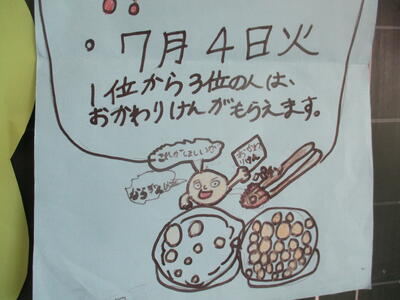 ・7月4日火
1位から3位の人は、
おかわりけんがもらえます。
これがほしいか
おかわ
りけん